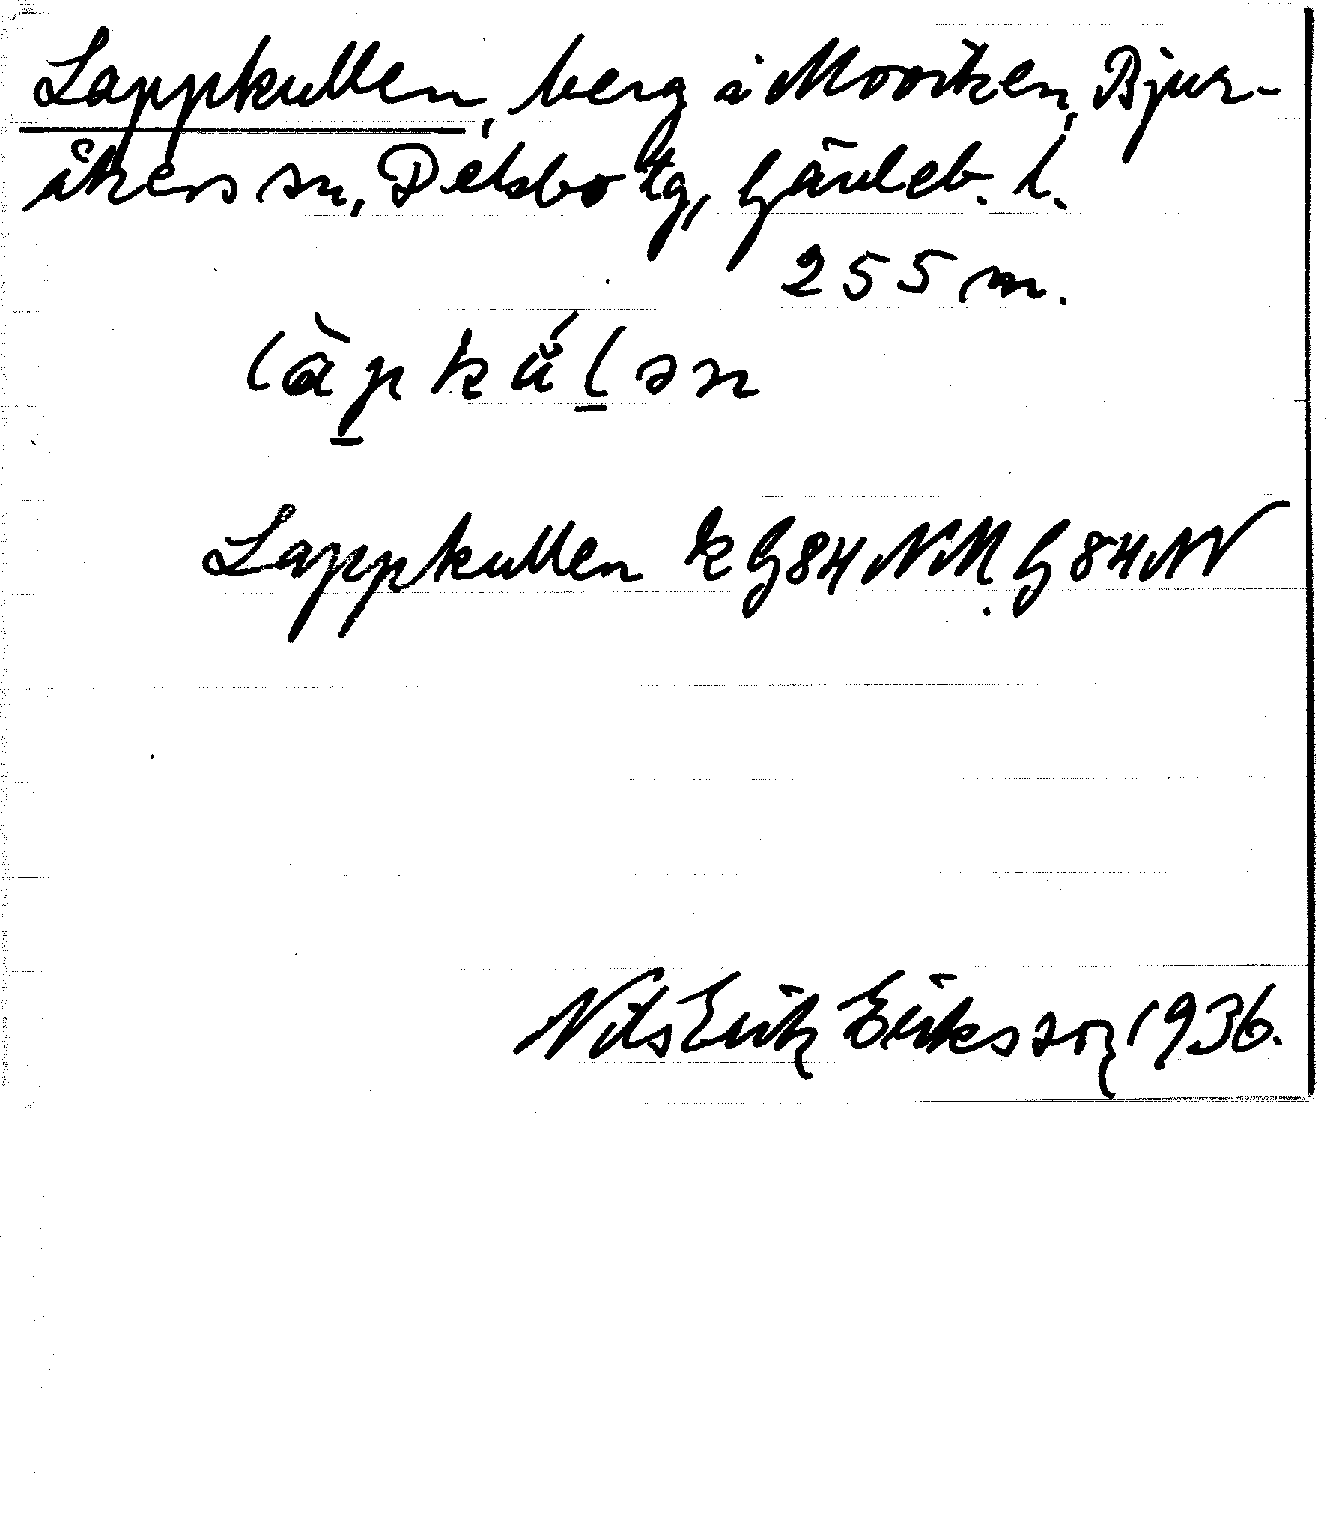 Lappkullen, berg i Moviken, Bjur-
åkers sn, Delsbo tg, Gävleb. l.
255 m.
làpkúlən
Lappkullen k G84NM, G84NV
Nils Erik Eriksson 1936.